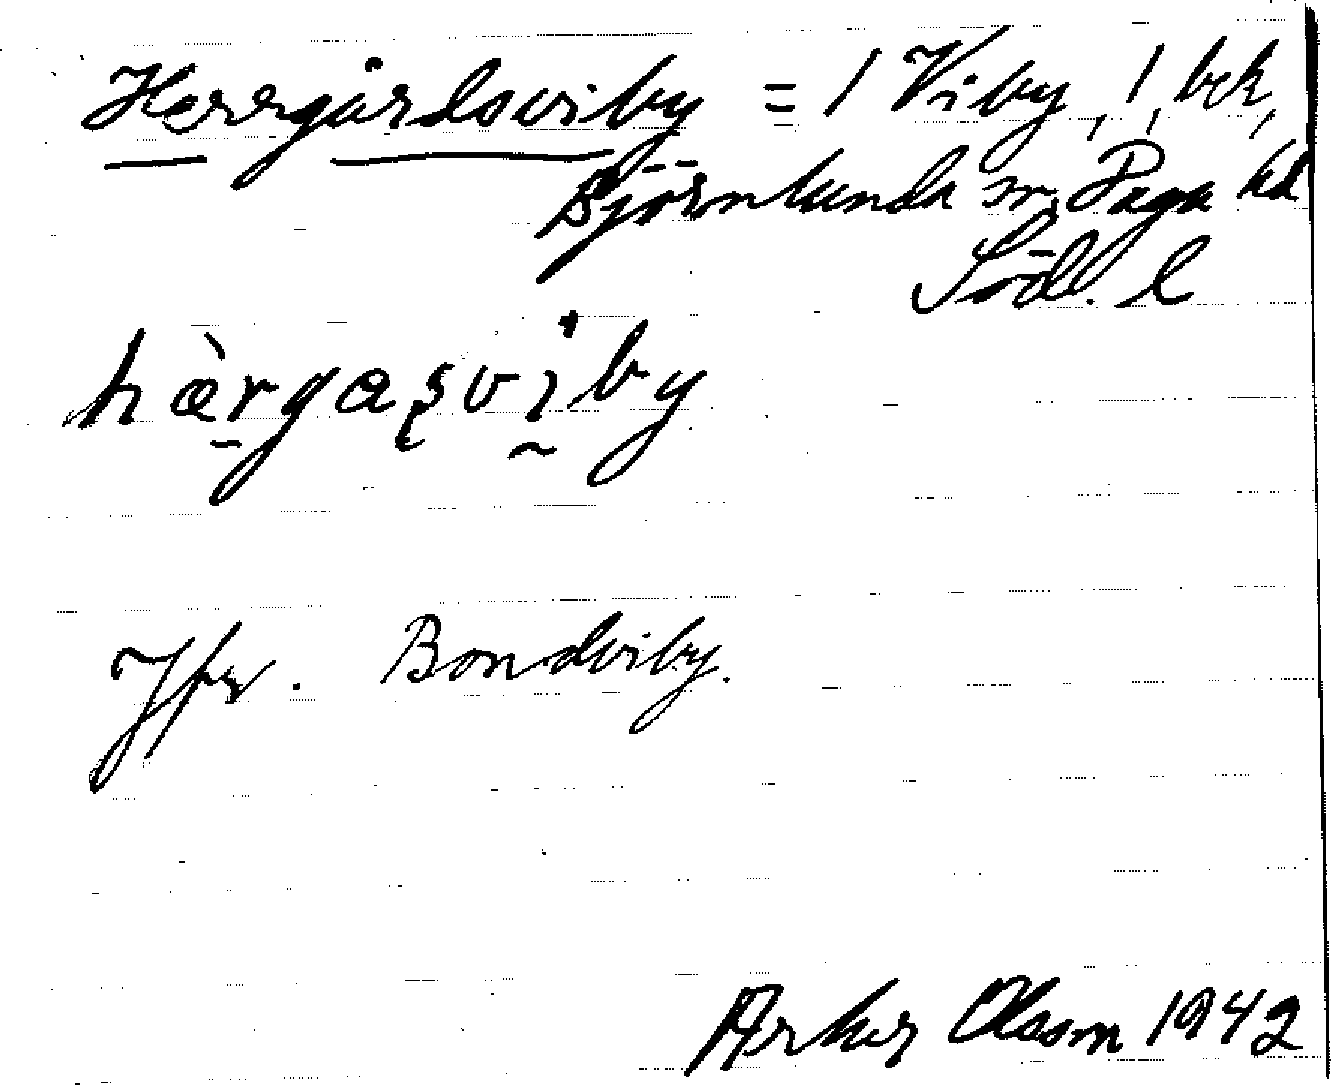 Herrgårdsviby = 1 Viby, 1, bek,
Björnlunda sn, Daga hd
Söd. l
hà̱rgaʂvi̱by
Jfr. Bondviby.
Olsson 1942